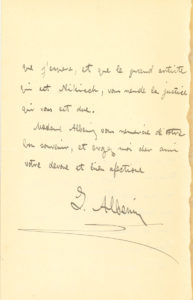 que j'espere, et que le grand artiste
qui est Nikisch, vous rende la justice
qui vous est due.
Madame Albeniz vous remercie de votre
bon souvenir, et croyez moi cher ami
votre devoué et bien affectioné
I. Albeniz